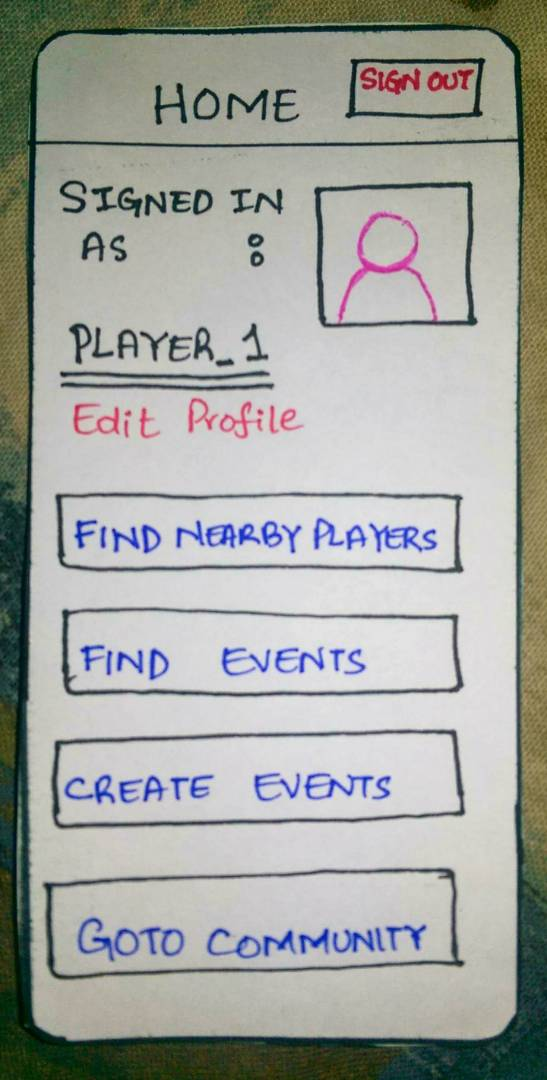 HOME
SIGN OUT
SIGNED IN
AS :
PLAYER_1
Edit Profile
FIND NEARBY PLAYERS
FIND EVENTS
CREATE EVENTS
GOTO COMMUNITY